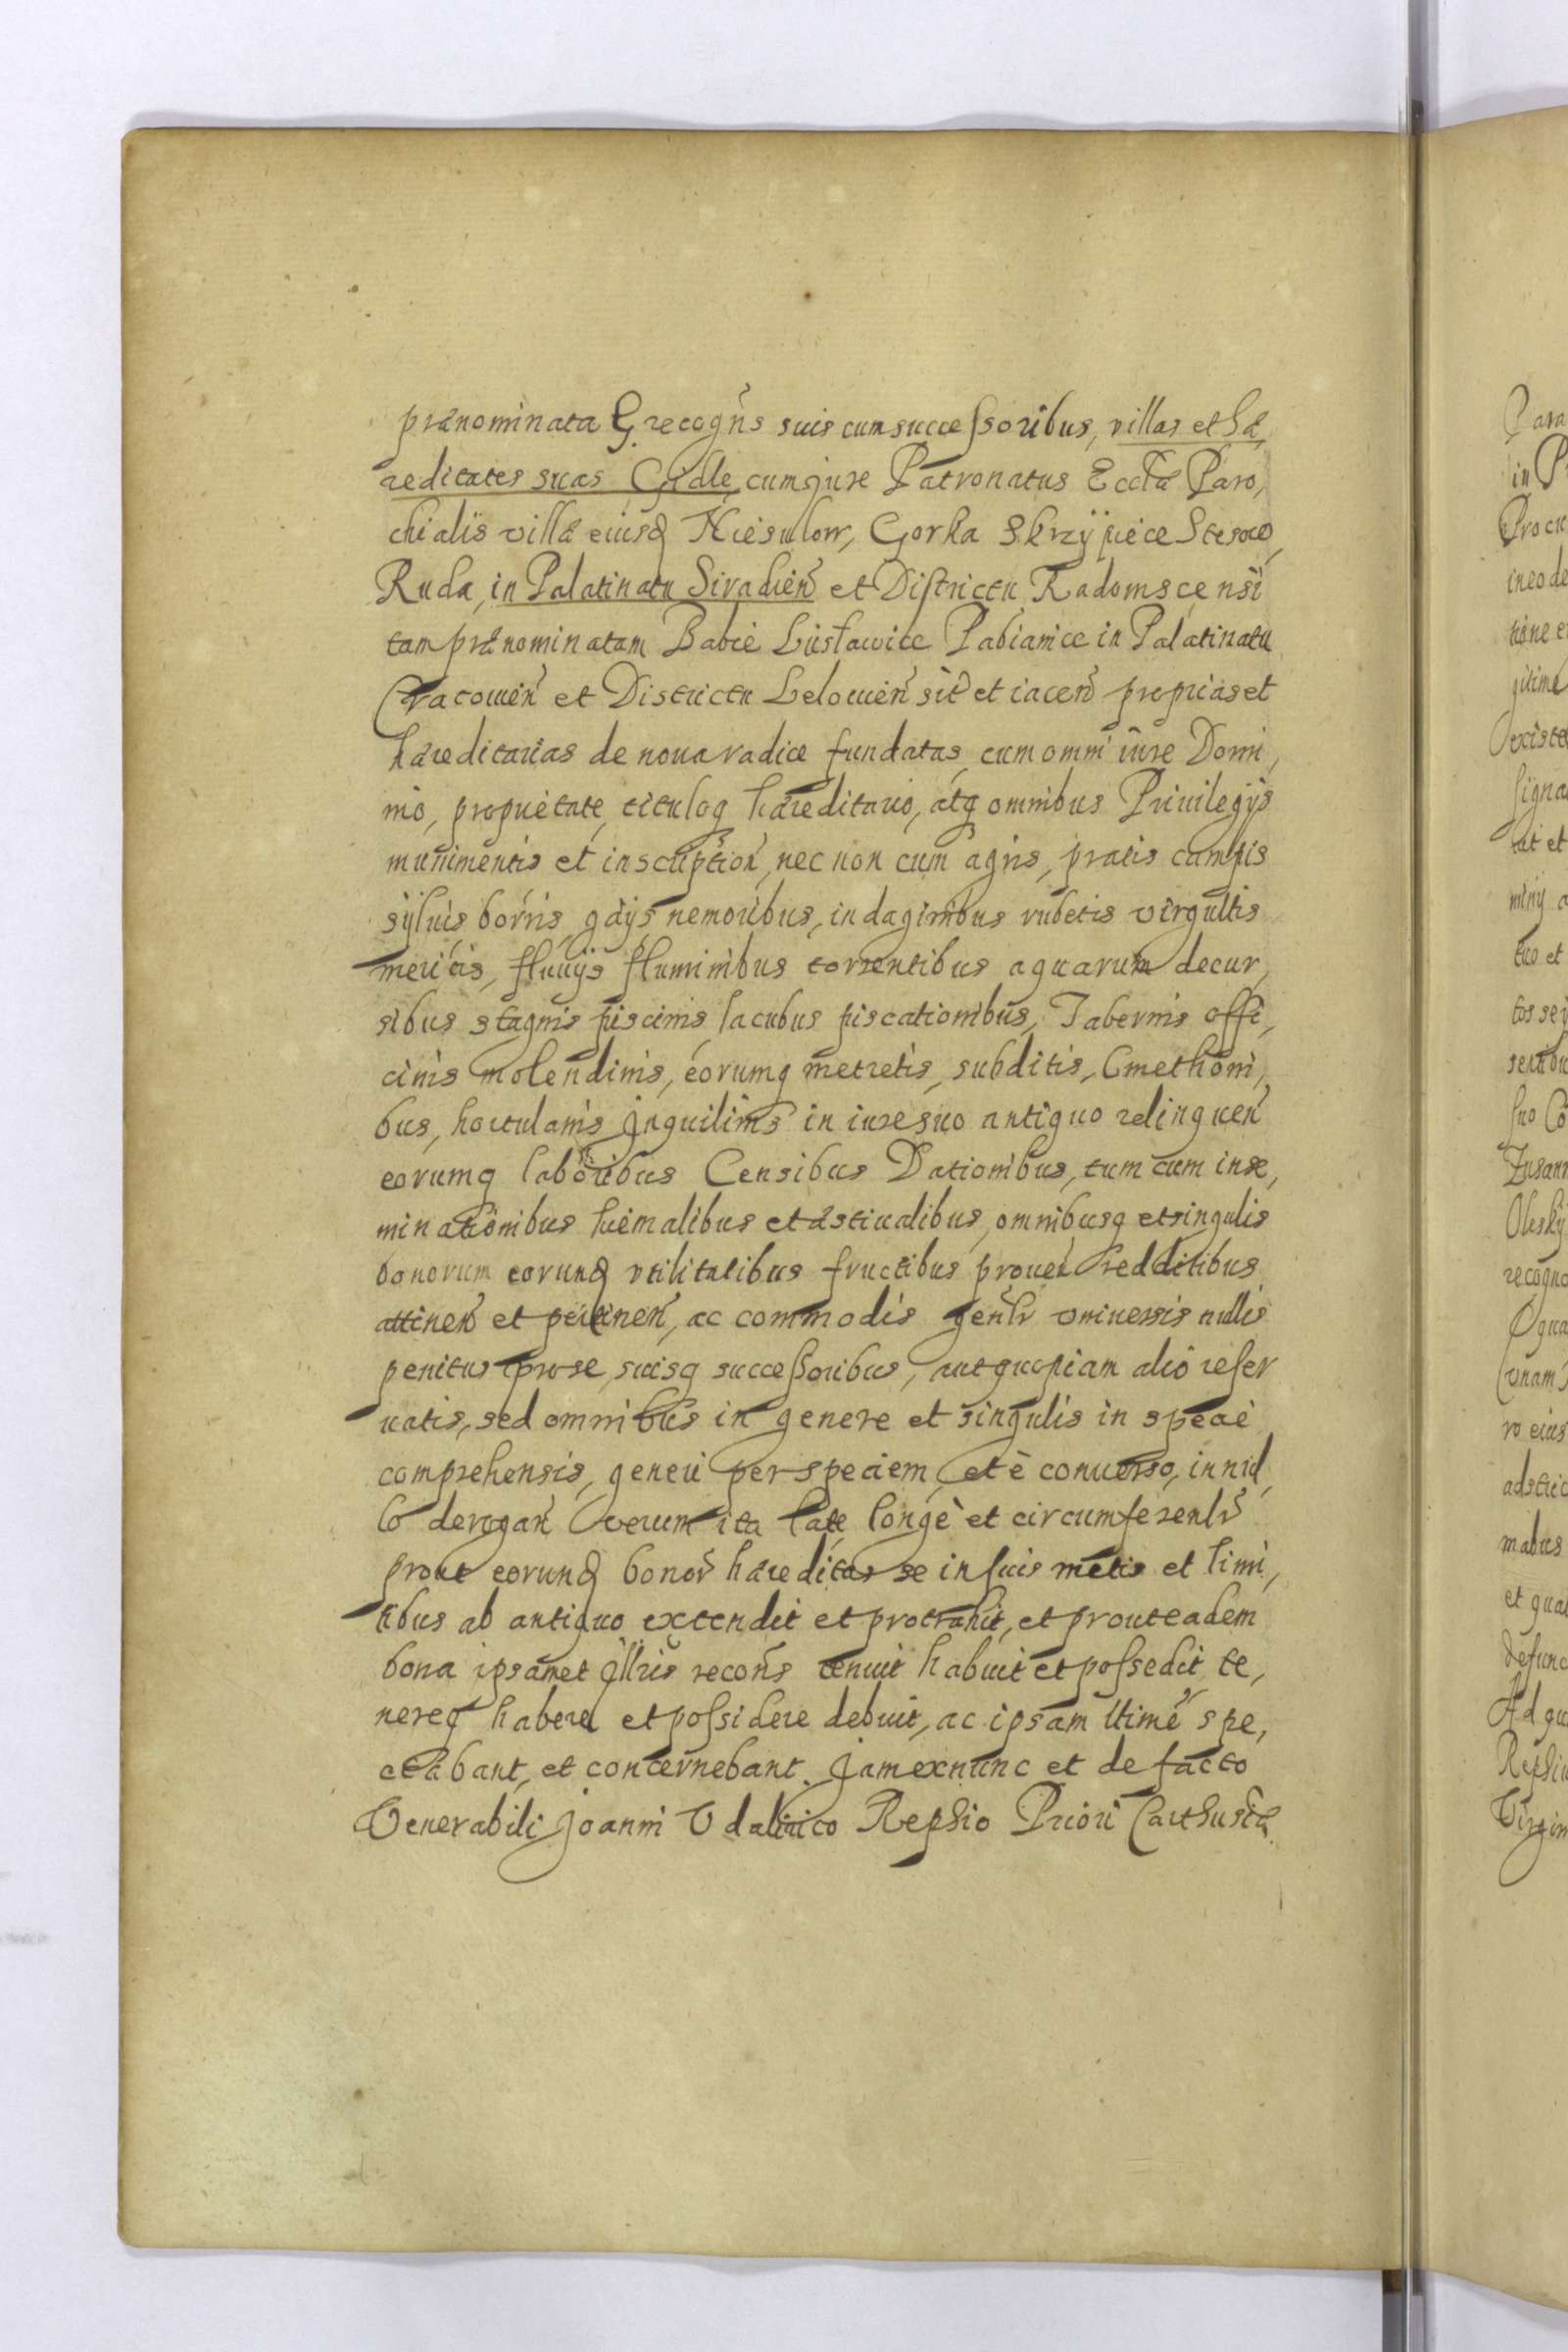 prænominata G. recogn̄s suis cum successoribus, villas et hæ,
reditates suas Gidle, cum jure Patronatus Eccl̄æ Paro,
chialis villæ eiusd Niesulow, Gorka Skrzÿpiece Stesowo,
Ruda, in Palatinatu Siradien̄ et Districtu Radomscensi
tam prænominatam Babie Lustawice Pabianice in Palatinatu
Cracouien̄ et Districtu Lelouien̄ sit̄ et iacen̄ proprias et
hæreditarias de noua radice fundatas, cum omni iure Domi,
nio, proprietate, tituloq hæreditario, atq omnibus Priuilegijs
munimentis et inscription̄, nec non cum agris, pratis campis
sÿluis borris, gaijs, nemoribus, indaginibus rubetis virgultis
mericis, fluuijs fluminibus torrentibus aquarum decur,
sibus stagnis piscinis lacubus piscationibus, Tabernis offi,
cinis molendinis, eorumq metretis, subditis, Cmethoni,
bus, hortulanis Jnquilinis in iure suo antiquo relinquen̄
eorumq laboribus Censibus Dationibus, tum cum inse,
minationibus hiemalibus et æstiualibus, omnibusq et singulis
bonorum eorund vtilitatibus fructibus prouen̄ redditibus
attinen̄ et pertinen̄, ac commodis gen̄lr vniuersis nullis
penitus pro se, suisq successoribus, aut quopiam alio reser
uatis, sed omnibus in genere et singulis in specie
comprehensis, generi per speciem, et è conuerso, in nul,
lo derogan̄ verum ita late, longè et circumferenlr̄
prout eorund bonor̄ hæreditas se in suis metis et limi,
tibus ab antiquo extendit et protrahit, et prout eadem
bona ipsamet Jllris recon̄s tenuit habuit et possedit, te,
nereq habere et possidere debuit, ac ipsam lltime spe,
ctabant, et concernebant. Jam ex nunc et de facto
Venerabili Joanni Vdalrico Rephio Priori Carthusiæ